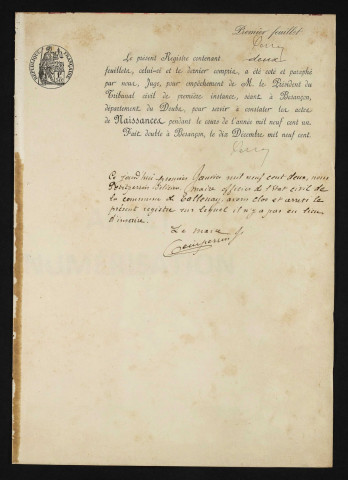 Premier feuillet
Le présent Registre contenant deux
feuillets, celui-ci et le dernier compris, a été coté et paraphé
par nous, Juge, pour empêchement de M. le Président du
Tribunal civil de première instance, séant à Besançon,
département du Doubs, pour servir à constater les actes
de Naissances pendant le cours de l'année mil neuf cent un.
Fait double à Besançon, le dix Décembre mil neuf cent.
Ce jourd'hui premier Janvier mil neuf cent deux, nous
maire officier de l'état civil de
la commune de avons clos et arrêté le
présent registre sur lequel il n'y a pas eu lieu
d'inscrire.
Le maire